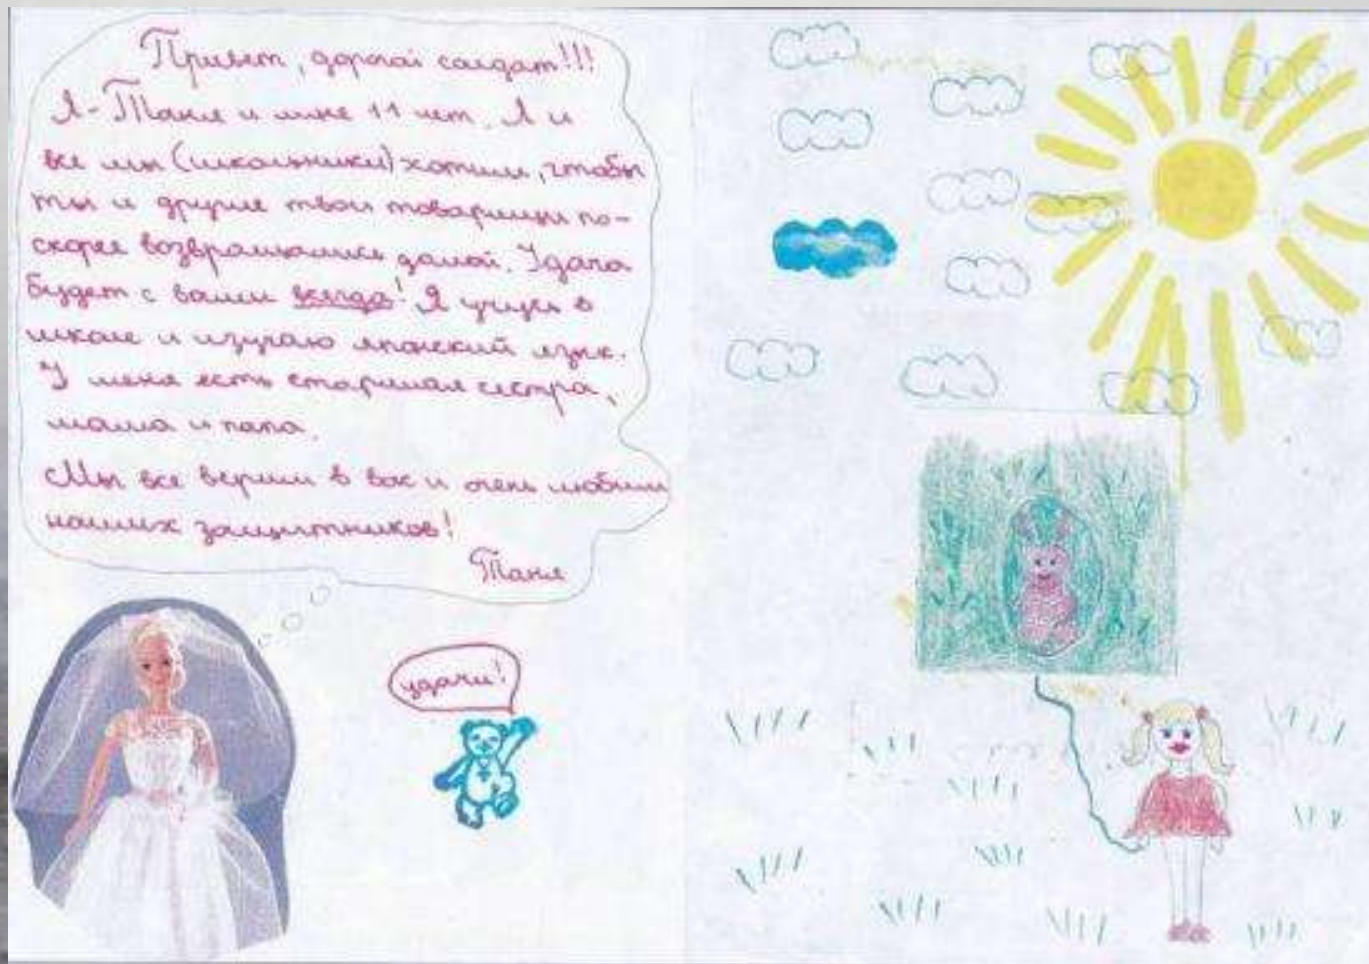 Привет, дорогой солдат!!!
Я - Таня и мне 11 лет. Я и
все мы (школьники) хотим, чтобы
ты и другие твои товарищи по-
скорее возвращались домой. Удача
будет с вами всегда! Я учусь в
школе и изучаю японский язык.
У меня есть старшая сестра,
мама и папа.
Мы все верим в вас и очень любим
наших защитников!
Таня
удачи!